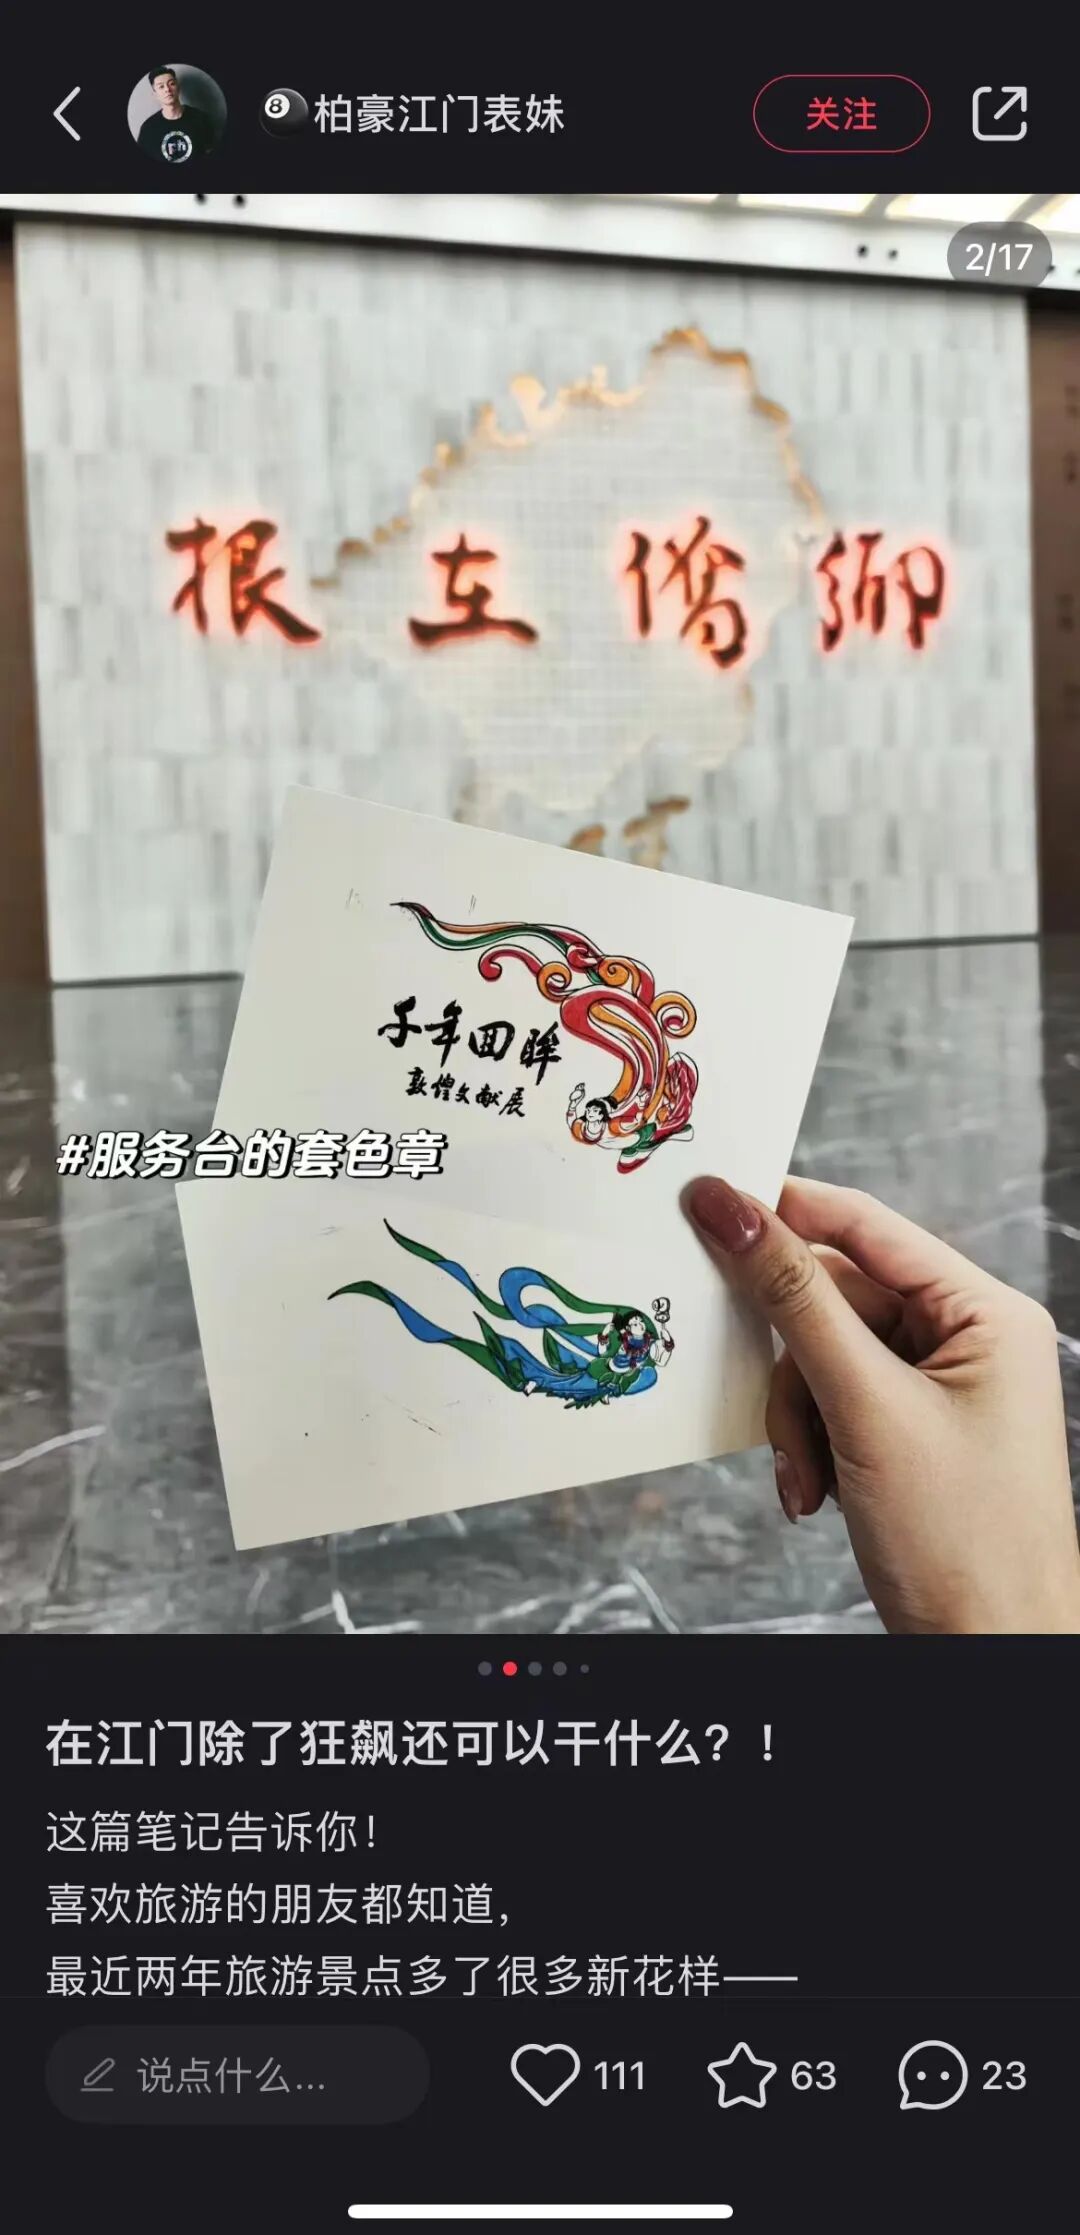 柏豪江门表妹
关注
2/17
根在侨乡
千年回眸
敦煌文献展
#服务台的套色章
在江门除了狂飙还可以干什么？！
这篇笔记告诉你！
喜欢旅游的朋友都知道，
最近两年旅游景点多了很多新花样——
说点什么...
111
63
23